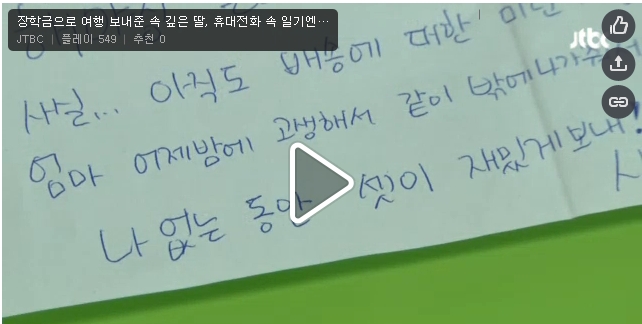 장학금으로 여행 보내준 속 깊은 딸, 휴대전화 속 일기엔…
JTBC | 플레이 549 | 추천 0
jtbc
사실... 아직도 배웅에 대한 미련
엄마 어제밤에 고생해서 같이 밖에 나가
나 없는 동안 셋이 재밌게 보내!